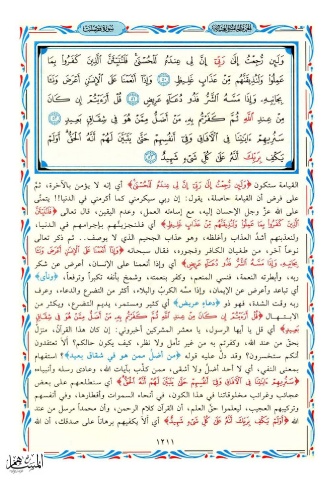 وَلَئِن رُّجِعْتُ إِلَىٰ رَبِّيٓ إِنَّ لِي عِندَهُۥ لَلْحُسْنَىٰ ۚ فَلَنُنَبِّئَنَّ ٱلَّذِينَ كَفَرُوا۟ بِمَا
عَمِلُوا۟ وَلَنُذِيقَنَّهُم مِّنْ عَذَابٍ غَلِيظٍ ٥٠ وَإِذَآ أَنْعَمْنَا عَلَى ٱلْإِنسَٰنِ أَعْرَضَ وَنَـَٔا
بِجَانِبِهِۦ وَإِذَا مَسَّهُ ٱلشَّرُّ فَذُو دُعَآءٍ عَرِيضٍ ٥١ قُلْ أَرَءَيْتُمْ إِن كَانَ
مِنْ عِندِ ٱللَّهِ ثُمَّ كَفَرْتُم بِهِۦ مَنْ أَضَلُّ مِمَّنْ هُوَ فِي شِقَاقٍۭ بَعِيدٍ ٥٢
سَنُرِيهِمْ ءَايَٰتِنَا فِي ٱلْءَافَاقِ وَفِيٓ أَنفُسِهِمْ حَتَّىٰ يَتَبَيَّنَ لَهُمْ أَنَّهُ ٱلْحَقُّ ۗ أَوَلَمْ
يَكْفِ بِرَبِّكَ أَنَّهُۥ عَلَىٰ كُلِّ شَيْءٍ شَهِيدٌ ٥٣
القيامة ستكون ﴿وَلَئِن رُّجِعْتُ إِلَىٰ رَبِّيٓ إِنَّ لِي عِندَهُۥ لَلْحُسْنَىٰ﴾ أي إنه لا يؤمن بالآخرة، ثمَّ
على فرض أن القيامة حاصلة، يقول: إن ربي سيكرمني كما أكرمني في الدنيا!! يتمنَّى
على الله عزَّ وجلَّ الإحسان إليه، مع إساءته العمل، وعدم اليقين، قال تعالى ﴿فَلَنُنَبِّئَنَّ
ٱلَّذِينَ كَفَرُوا۟ بِمَا عَمِلُوا۟ وَلَنُذِيقَنَّهُم مِّنْ عَذَابٍ غَلِيظٍ﴾ أي فلنجزينَّهم بإجرامهم في الدنيا،
ولنعذبنهم أشدَّ العذاب وأغلظه، وهو عذاب الجحيم الذي لا يوصف.. ثم ذكر تعالى
نوعاً آخر، من طغيان الكافر وفجوره، فقال سبحانه ﴿وَإِذَآ أَنْعَمْنَا عَلَى ٱلْإِنسَٰنِ أَعْرَضَ وَنَـَٔا
بِجَانِبِهِۦ وَإِذَا مَسَّهُ ٱلشَّرُّ فَذُو دُعَآءٍ عَرِيضٍ﴾ أي وإذا أنعمنا على الإنسان، أعرض عن شكر
ربه، وأبطرته النعمة، فنسي المنعم، وكفر بنعمته، وشمخ بأنفه تكبراً وترفعاً، ﴿ونأى﴾
أي تباعد وأعرض عن الإيمان، وإذا مسَّه الكربُ والبلاء، أكثر من التضرع والدعاء، وعرف
ربه وقت الشدة، فهو ذو ﴿دعاءٍ عريض﴾ أي كثير ومستمر، يديم التضرع، ويكثر من
الابتهال ﴿قُلْ أَرَءَيْتُمْ إِن كَانَ مِنْ عِندِ ٱللَّهِ ثُمَّ كَفَرْتُم بِهِۦ مَنْ أَضَلُّ مِمَّنْ هُوَ فِي شِقَاقٍۭ
بَعِيدٍ﴾ أي قل يا أيها الرسول، يا معشر المشركين أخبروني: إن كان هذا القرآن، منزلٌ
بحقٍّ من عند الله، وكفرتم به من غير تأملٍ ولا نظر، كيف يكون حالكم؟ ألا تعتقدون
أنكم ستخسرون؟ وقد دلَّ عليه قوله ﴿من أضلُّ ممن هو في شقاق بعيد﴾؟ استفهام
بمعنى النفي، أي لا أحد أضلُّ ولا أشقى، ممن كذَّب بآيات الله، وعادى رسله وأنبياءه
﴿سَنُرِيهِمْ ءَايَٰتِنَا فِي ٱلْءَافَاقِ وَفِيٓ أَنفُسِهِمْ حَتَّىٰ يَتَبَيَّنَ لَهُمْ أَنَّهُ ٱلْحَقُّ﴾ أي سنطلعهم على بعض
عجائب وغرائب مخلوقاتنا في هذا الكون، في أنحاء السموات وأقطارها، وفي أنفسهم
وتركيبهم العجيب، ليعلموا حقَّ العلم، أن القرآن كلام الرحمن، وأن محمداً مرسل من عند
الله ﴿أَوَلَمْ يَكْفِ بِرَبِّكَ أَنَّهُۥ عَلَىٰ كُلِّ شَيْءٍ شَهِيدٌ﴾ أي ألا يكفيهم برهاناً على صدقك، أن الله
١٢١١